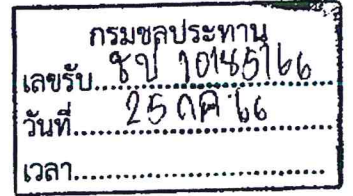 กรมชลประทาน
เลขรับ ชป 10145/66
วันที่ 25 กค 66
เวลา